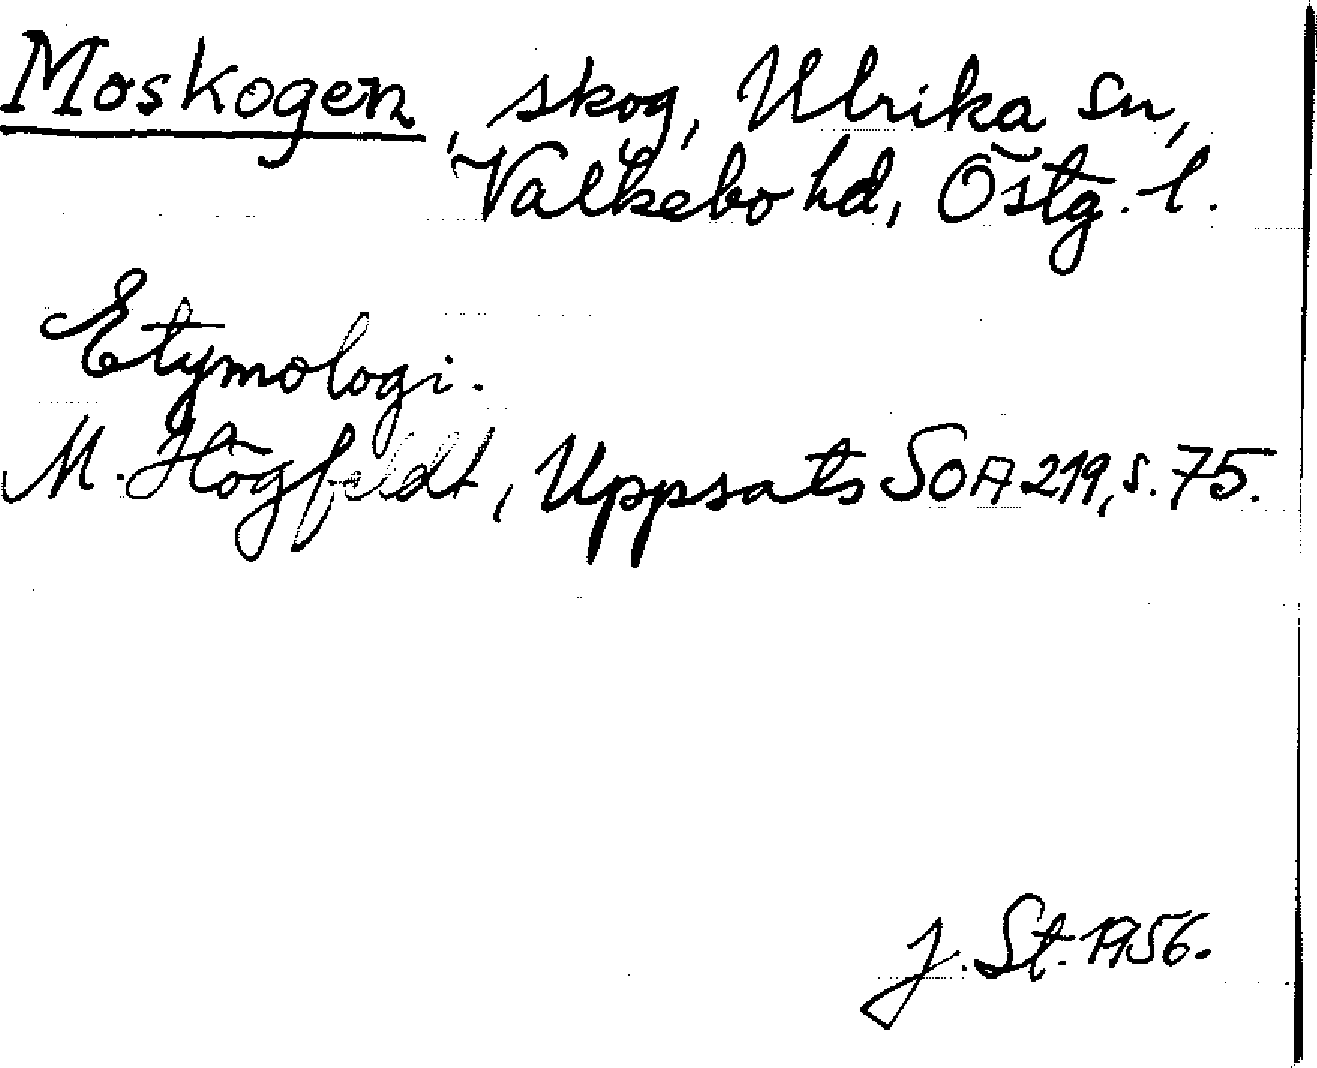 Moskogen, skog, Ulrika sn,
Valkebo hd, Östg. l.
Etymologi.
M. Högfeldt, Uppsats SOA 219, s. 75.
J. St. 1956.